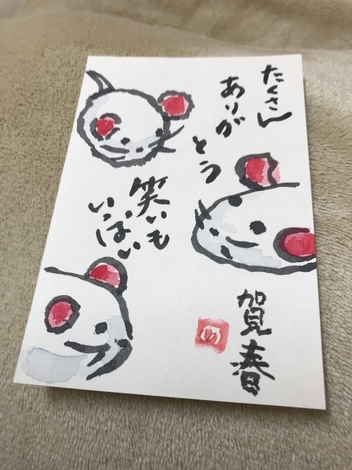 たくさん
ありが
とう
笑いも
いっぱい
賀春
の